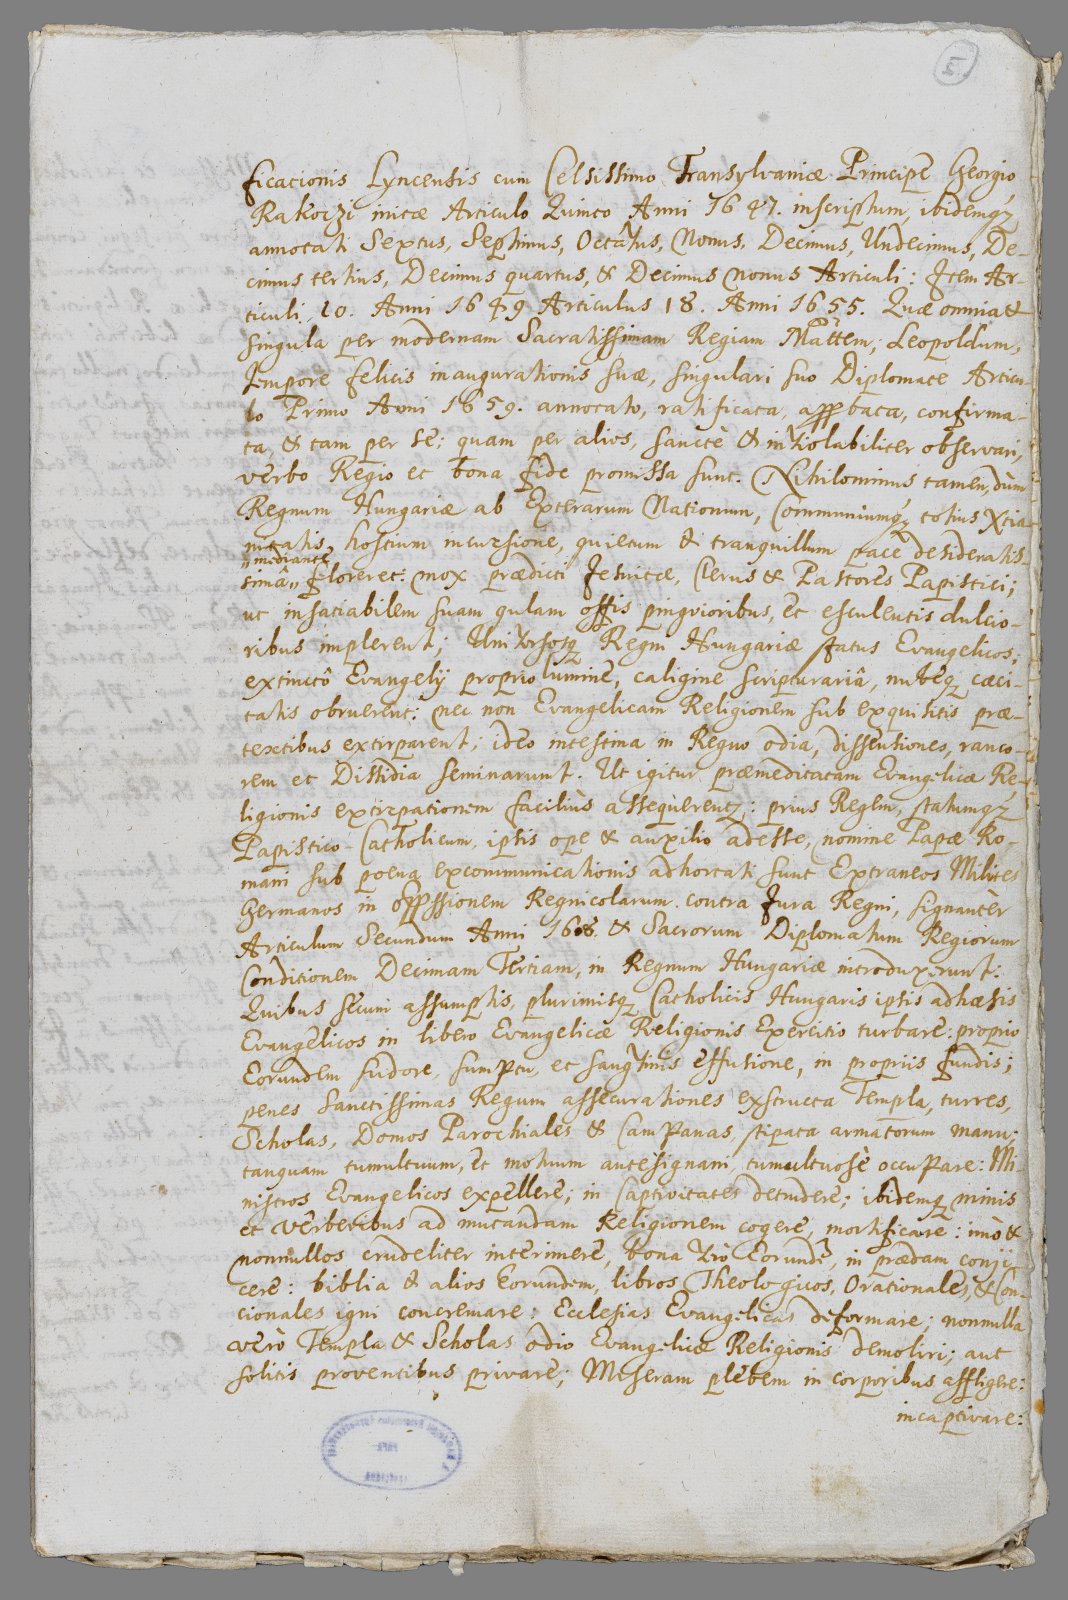 2.
ficationis Lyncensis cum Celsissimo Transylvaniæ Principe Georgio
Rakoczi initæ Articulo Quinto Anni 1647. inscriptum, ibidemqȝ
annotati Sextus, Septimus, Octavus, Nonus, Decimus, Undecimus, De-
cimus tertius, Decimus quartus, & Decimus nonus Articuli: Item Ar-
ticuli 10. Anni 1649 Articulus 18. Anni 1655. Quæ omnia &
singula per modernam Sacratissimam Regiam Mattem, Leopoldum,
Tempore felicis inaugurationis suæ, singulari suo Diplomate Articu-
lo Primo Anni 1659. annotato, ratificata, approbata, confirma-
ta, & tam per se; quam per alios, sanctè & inviolabiliter observari,
verbo Regio et bona fide promissa sunt. Nihilominus tamen, dum
Regnum Hungariæ ab Exterarum Nationum, Communiumqȝ totius Xtia-
nitatis hostium incursione, quietum & tranquillum pace desideratis-
„mediante
simâ„ floreret: mox prædicti Jesuitæ, Clerus & Pastores Papistici;
ut insatiabilem suam gulam offis pinguioribus, et esculentis dulcio-
ribus implerent; Universosqȝ Regni Hungariæ status Evangelicos,
extinctô Evangelij proprio lumine, caligine scripturariâ, nubeqȝ cæci-
tatis obruerent: nec non Evangelicam Religionem sub exquisitis præ-
textibus extirparent; ideo intestina in Regno odia, dissentiones, ranco-
rem et Dissidia seminarunt. Ut igitur præmeditatam Evangelicæ Re-
ligionis extirpationem faciliùs assequerentȝ: prius Regem, statumqȝ
Papistico-Catholicum, ipsis ope & auxilio adesse, nomine Papæ Ro-
mani sub poena excommunicationis adhortati sunt Extraneos Milites
Germanos in oppssionem Regnicolarum contra Jura Regni, signantèr
Articulum Secundum Anni 1608. & Sacrorum Diplomatum Regiorum
Conditionem Decimam Tertiam, in Regnum Hungariæ introduxerunt:
Quibus secum assumptis, plurimisqȝ Catholicis Hungaris ipsis adhæsis
Evangelicos in libero Evangelicæ Religionis Exercitio turbare: proprio
Eorundem sudore, sumptu, et sangvinis effusione, in propriis fundis;
penes Sanctissimas Regum assecurationes exstructa Templa, turres,
Scholas, Domos Parochiales & Campanas, stipata armatorum manu;
tanquam tumultuum, et motuum antesignani, tumultuosè occupare: Mi-
nistros Evangelicos expellere; in Captivitates detrudere; ibidemqȝ minis
et verberibus ad mutandam Religionem cogere, mortificare: imò &
nonnullos crudeliter interimere, bona verò Eorundê, in prædam conji-
cere: biblia & alios Eorundem, libros Theologicos, Orationales, & Con-
cionales igni concremare: Ecclesias Evangelicas deformare; nonnulla
verò Templa & Scholas odio Evangelicæ Religionis demoliri; aut
solitis proventibus privare; Miseram plebem in corporibus affligere:
incaptivare: